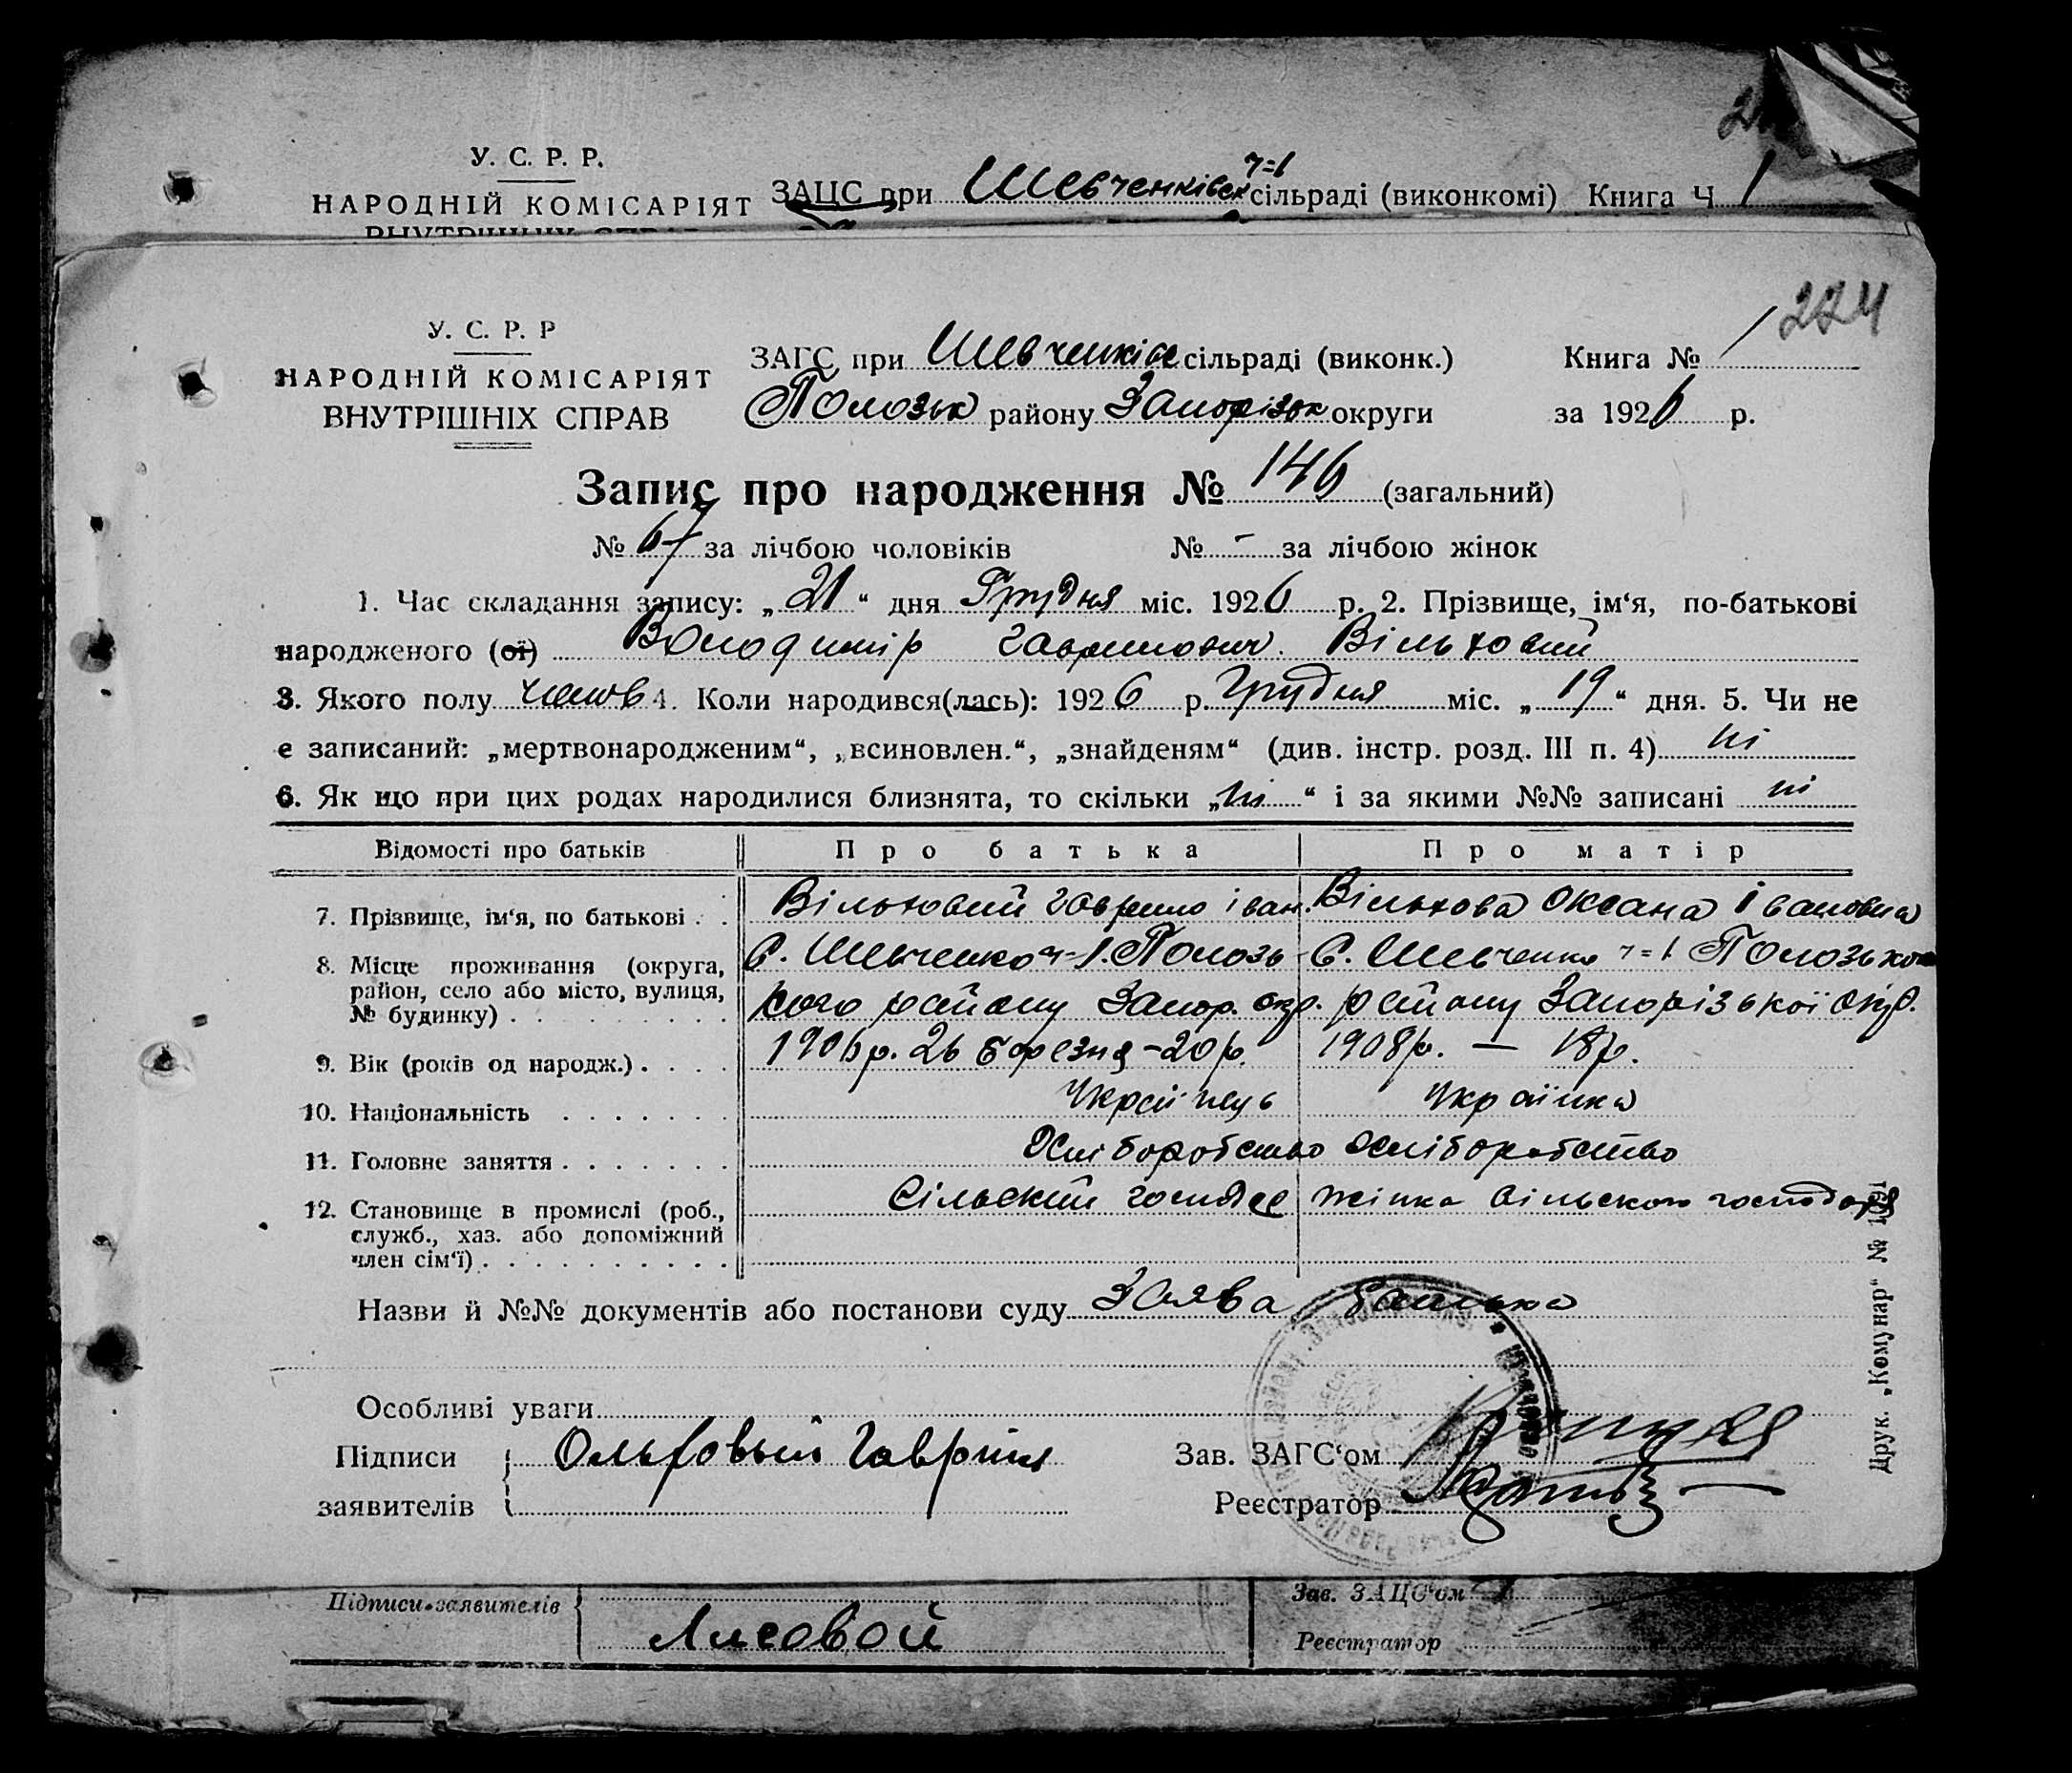 У. С. Р. Р.
НАРОДНІЙ КОМІСАРІЯТ ЗАЦС при Шевченківск ч=1 сільраді (виконкомі) Книга Ч 1
ВНУТРІШНІХ СПРАВ
224
У. С. Р. Р
НАРОДНІЙ КОМІСАРІЯТ
ВНУТРІШНІХ СПРАВ
ЗАГС при Шевченківс сільраді (виконк.) Книга № 1
Полозьк району Запорізьк округи за 1926 р.
Запис про народження № 146 (загальний)
№ 67 за лічбою чоловіків № - за лічбою жінок
1. Час складання запису: „21“ дня Грудня міс. 1926 р. 2. Прізвище, ім‘я, по-батькові
народженого (ої) Володимір Гаврилович. Вільховий
3. Якого полу чолов 4. Коли народився(лась): 1926 р. Грудня міс. „19“ дня. 5. Чи не
є записаний: „мертвонародженим“, „всиновлен.“, „знайденям“ (див. інстр. розд. III п. 4) ні
6. Як що при цих родах народилися близнята, то скільки „ні“ і за якими №№ записані ні
Відомості про батьків Про батька Про матір
7. Прізвище, ім‘я, по батькові . . Вільховий Гаврило іван. Вільхова Оксана Івановна
8. Місце проживання (округа, район, село або місто, вулиця, № будинку) . С. Шевченко ч=1. Полозь С. Шевченко ч=1 Полозького
кого району Запор. окр. району Запорізької окр.
9. Вік (років од народж.) . . . . 1906 р. 26 березня – 20 р. 1908 р. — 18 р.
10. Національність . . . . . . Українець Українка
11. Головне заняття . . . . . . . Хліборобство Хліборобство
12. Становище в промислі (роб., служб., хаз. або допоміжний член сім‘ї) . Сільский Жінка сільского господаря
Назви й №№ документів або постанови суду Заява батька
Особливі уваги
Підписи заявителів Ольховый Гаврил
Зав. ЗАГС‘ом
Реєстратор
Друк. „Комунар“ №
Підписи заявителів Лисовой
Зав. ЗАЦС‘ом
Реєстратор